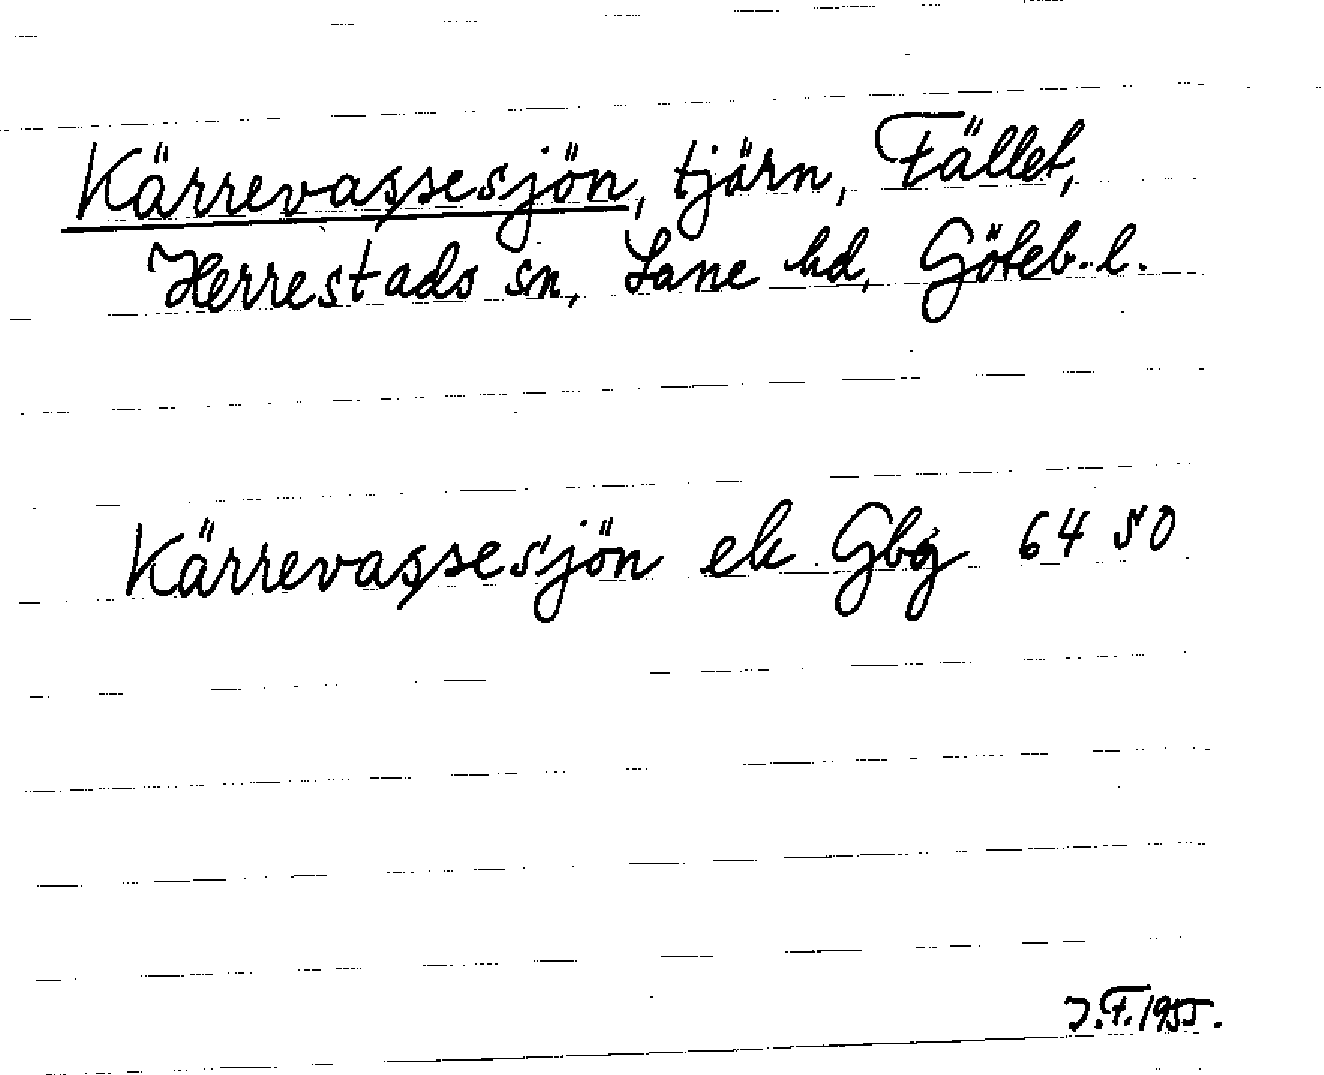 Kärrevassesjön, tjärn, Fället,
Herrestads sn, Lane hd, Göteb.l.
Kärrevassesjön ek Gbg 64 50
J.F. 1955.